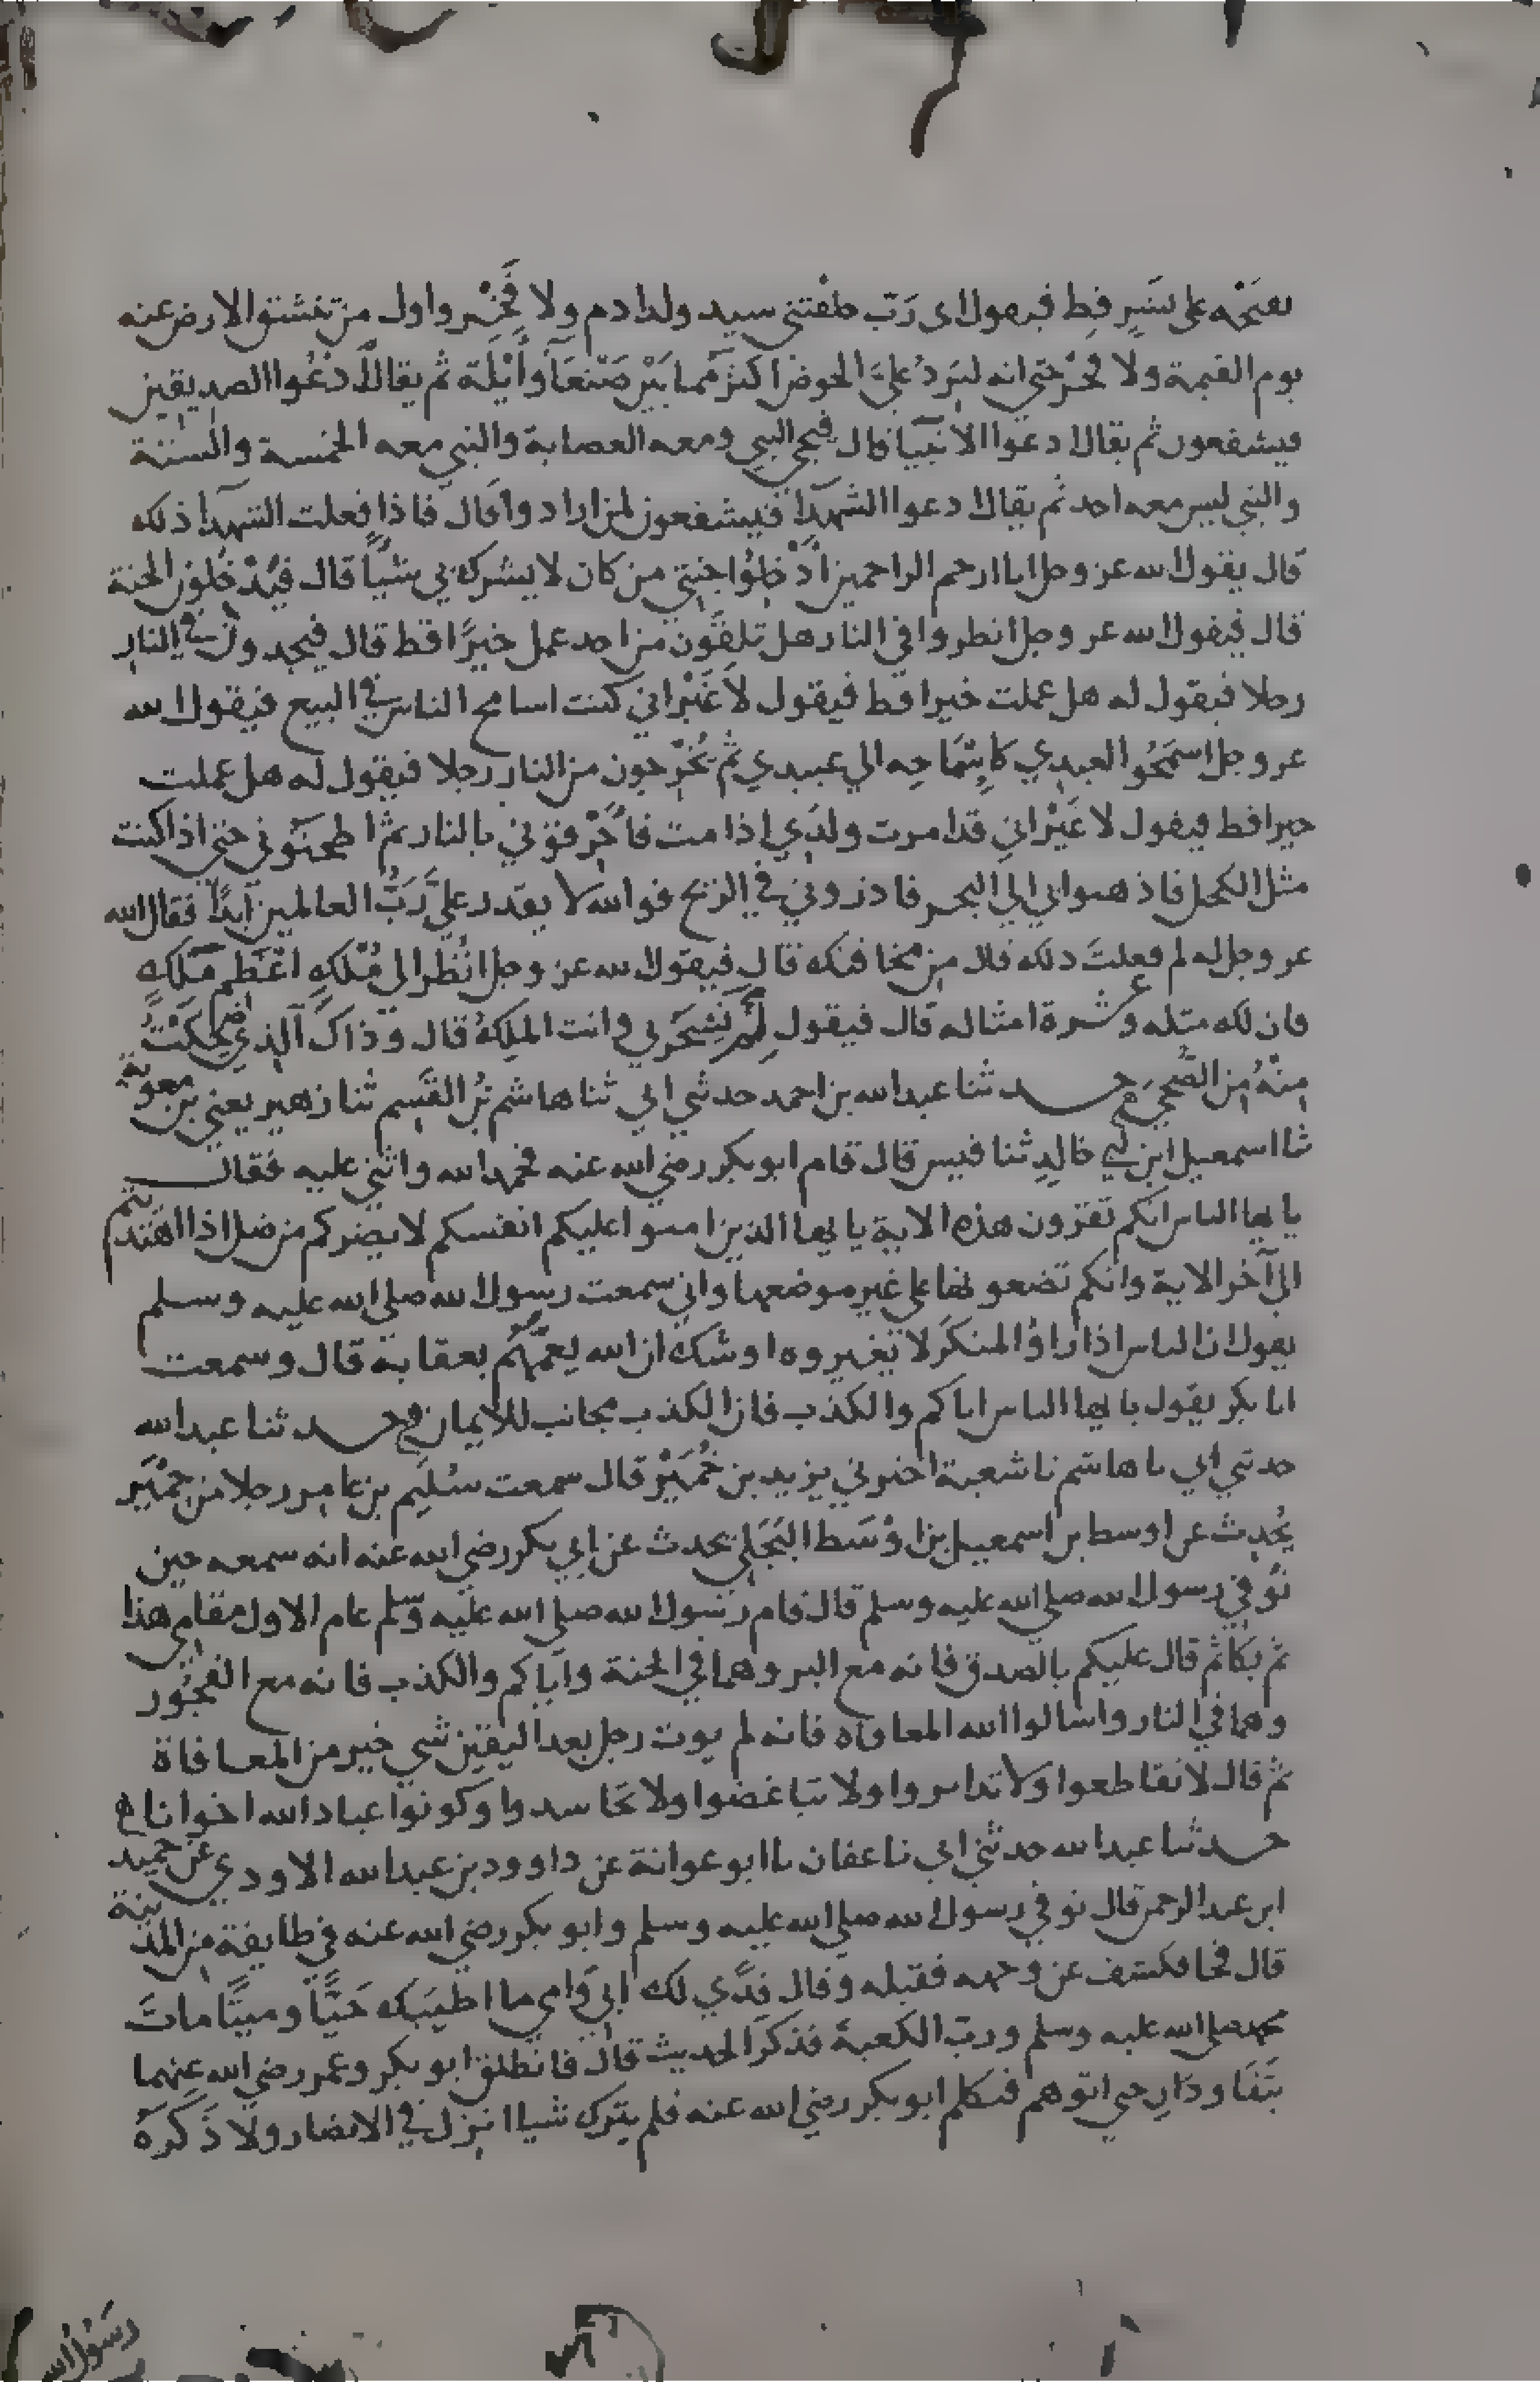 يفتحه على بشر قط فيقول اى رَبّ خلقتنى سيد ولد ادم ولا فَخْر واول من تنشق الارض عنه
يوم القيمة ولا فخْر حتى انه ليَرِدُ عليَّ الحوض اكثر مما بَيْن صَنْعَا وأَيْلَة ثم يقال ادْعُوا الصديقين
فيشفعون ثم يقال ادعوا الانبيا قال فيجي النبي ومعه العصابة والنبي معه الخمسة والستة
والنبي ليس معه احد ثم يقال ادعوا الشهدا فيشفعون لمن ارادوا قال فاذا فعلت الشهدا ذلك
قال يقول الله عز وجل انا ارحم الراحمين أدْخِلُوا جنتي من كان لا يشرك بي شيًا قال فيَدْخُلون الجنة
قال فيقول الله عز وجل انظروا في النار هل تلقَوْن من احد عمل خيرًا قط قال فيجدون في النار
رجلا فيقول له هل عملت خيرا قط فيقول لا غَيْر اني كنت اسامح الناس في البيع فيقول الله
عز وجل اسمَحُوا لعبدي كاسْمَاحِه الي عبيدي ثم يُخْرِجون من النار رجلا فيقول له هل عملت
خيرا قط فيقول لا غَيْر اني قد امرت ولدي إذا مت فاَحْرِقوني بالنار ثم اطحنوني حتى اذا كنت
مثل الكحل فاذهبوا بي الي البحر فاذروني في الريح فوالله لا يقدر عليَّ رَبُّ العالمين أبدًا فقال الله
عز وجل له لم فعلتَ ذلك قال من مخافتك قال فيقول الله عز وجل انْظُر الى مُلْكِ اعْظَم مَلِكٍ
فان لك مثله وعشرة امثاله قال فيقول لِمَ تَسْخَر بي وانت الملِكُ قال وذاك الذي ضحكْتُ
مِنْهُ مِن الضُّحَي حدثنا عبد الله بن احمد حدثني ابي ثنا هاشم بْنُ القَسِم ثنا زهير يعني بن معوية
ثنا اسمعيل ابن ابي خالِد ثنا قيس قال قام ابو بكر رضي الله عنه فحمد الله واثنى عليه فقال
يا يها الناس انكم تقرون هذه الاية يا يها الذين امنوا عليكم انفسكم لا يضركم من ضل اذا اهتديتم
الى آخر الاية وانكم تضعونها على غير موضعها واني سمعت رسول الله صلى الله عليه وسلم
يقول ان الناس اذا رَاوُا المنكرَ لا يغيروه اوشك ان الله يعمّهُم بعقابه قال وسمعت
ابا بكر يقول يا يها الناس اياكم والكذب فان الكذب مجانب للايمان حدثنا عبد الله
حدثني ابي نا هاشم نا شعبة اخبرني يزيد بن خُمَيْر قال سمعت سُلَيم بن عامر رجلا من حِمْيَر
يُحدِث عن اوسط بن اسمعيل بن اوْسَط البَجَلي يحدث عن ابي بكر رضي الله عنه انه سمعه حين
تُوفي رسول الله صلى الله عليه وسلم قال قام رسول الله صلى الله عليه وسلم عام الاول مقامي هذا
ثم بَكَا ثم قال عليكم بالصدق فانه مع البر وهما في الجنة واياكم والكذب فانه مع الفجُور
وهما في النار واسالوا الله المعافاه فانه لم يوت رجل بعد اليقين شي خير من المعافاة
ثم قال لا تقاطعوا ولا تدابروا ولا تباغضوا ولا تحاسدوا وكونوا عباد الله اخوانا
حدثنا عبد الله حدثني ابي نا عفان نا ابو عوانة عن داوود بن عبد الله الاودي عن حميد
ابن عبد الرحمن قال توفي رسول الله صلى الله عليه وسلم وابو بكر رضي الله عنه في طايفة من المدينة
قال فجا فكشف عن وجهه فقبله وقال فِدًي لك ابي وامي ما اطيَبَك حَيًّا وميتًا ماتَ
محمد صلى الله عليه وسلم وربّ الكعبة فذكر الحديث قال فانطلق ابو بكر وعمر رضي الله عنهما
يتَقَاودَانِ حتي اتوهم فتكلم ابو بكر رضي الله عنه فلم يترك شيا انزل في الانصار ولا ذَكَرَهُ
رَسُولُ الله